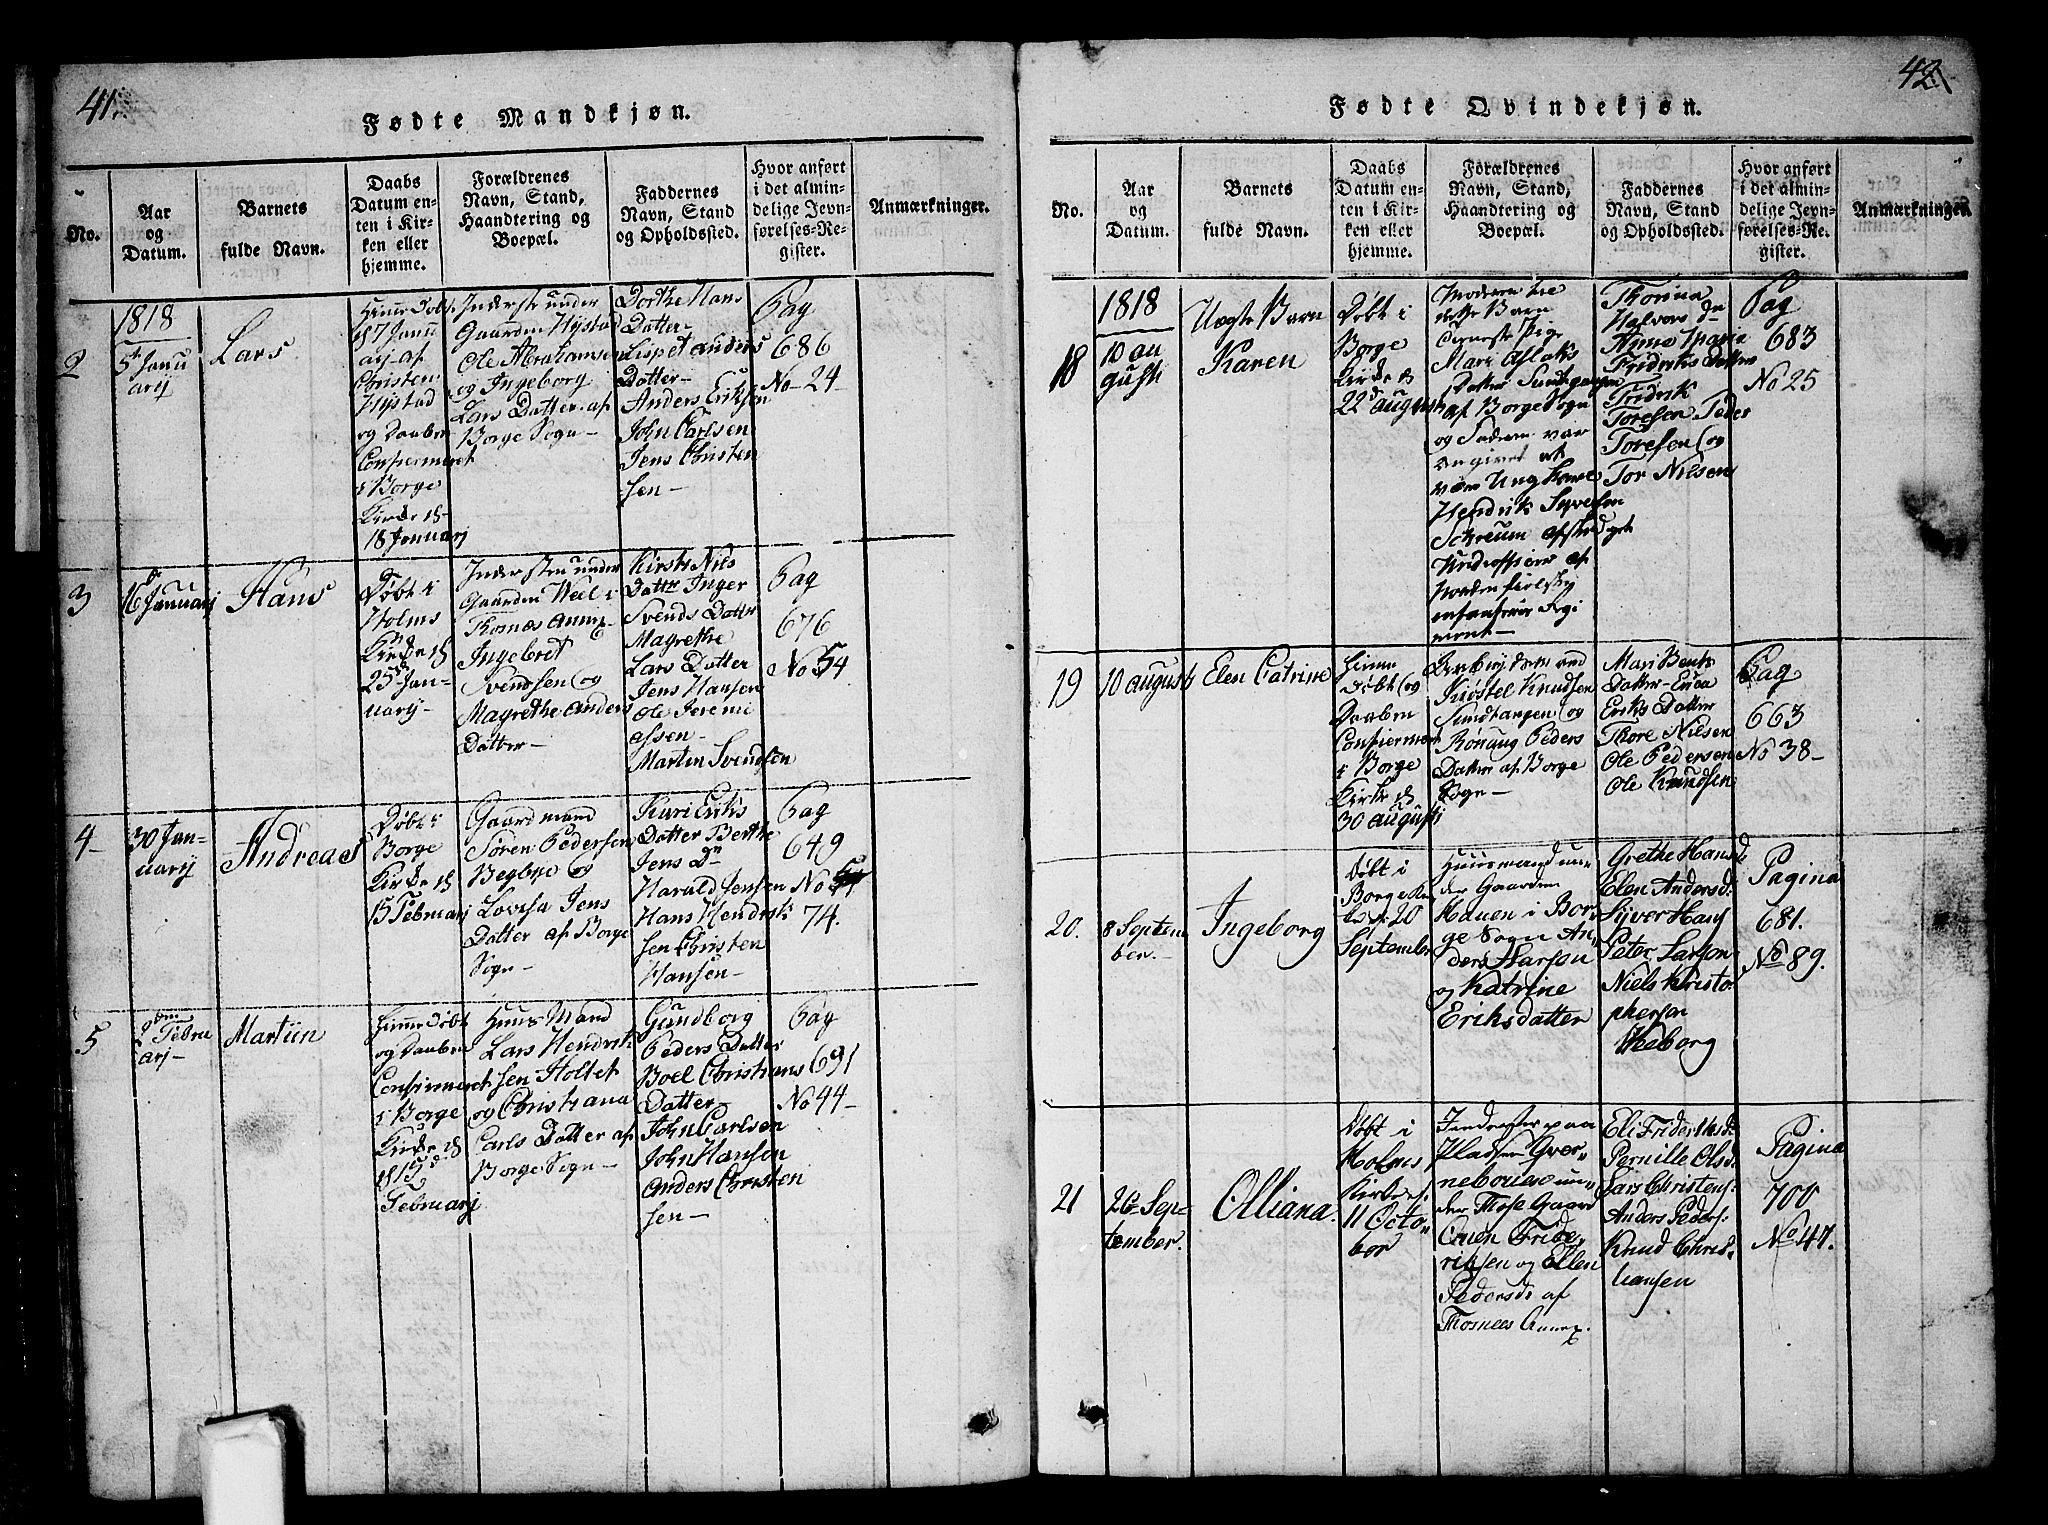 41.
Fødte Mandkjøn.
No.
Aar
og
Datum.
Barnets
fulde Navn.
Daabs
Datum en-
ten i Kir-
ken eller
hjemme.
Forældrenes
Navn, Stand,
Haandtering og
Boepæl.
Faddernes
Navn, Stand
og Opholdssted.
Hvor anført
i det almin-
delige Jevn-
førelses-Re-
gister.
Anmærkninger.
2
1818
5te Janu
arij
Lars
Hjemme Døbt
17 Janu
arj af
Christen
Hystad
og Daaben
Confiermeret
i Borge
Kirke d
18 Januarj
Inderste under
Gaarden Hystad
Ole Abrahamsen
og Ingeborg
Lars Datter af
Borge Sogn-
Dorthe Hans
Datter-
Lispet Anders
Datter-
Anders Eriksen
John Carlsen
Jens Christen
sen-
Pag
686
No 24-
3
16 Januarj
Hans
Døbt i
Holms
Kirke d
25 Jan-
uarij-
Indersten under
Gaarden Weel i
Thosnæs Annex
Ingebret
Svendsen og
Magrethe Anders
Datter-
Kirsti Nils
Datter Inger
Svends Datter
Magrethe
Lars Datter
Jens Hansen
Ole Jeremi
assen-
Martin Svendsen
Pag
676
No 54
4-
30 Jan-
uarij
Andreas
Døbt i
Borge
Kirke d
15 Februarj
Gaardmand
Søren Pedersen
Begbye og
Lovisa Jens
Datter af Borge
Sogn-
Kari Eriks
Datter Berthe
Jens Dn
Harald Jensen
Hans Hendrik
sen Christen
Hansen-
Pag
649
No
74.
5
2den Febru
arj-
Martiin
Hjemme Døbt
og Daaben
Confirmeret
i Borge
Kirke d
15d
Februarj
Huus Mand
Lars Hendrik
sen Holtet
og Christiana
Carls Datter af
Borge Sogn-
Gundborg
Peders Datter
Boel Christians
Datter-
John Carlsen
John Hansen
Anders Christen
sen-
Pag
691
No 44-
42
Fødte Qvindekjøn.
No.
Aar
og
Datum.
Barnets
fulde Navn.
Daabs
Datum en-
ten i Kir-
ken eller
hjemme.
Forældrenes
Navn, Stand,
Haandtering og
Boepæl.
Faddernes
Navn, Stand
og Opholdssted.
Hvor anført
i det almin-
delige Jevn-
førelses-Re-
gister.
Anmærkninger.
18
1818
10 au
gusti
Uægte Barn
Karen
Døbt i
Borge
Kirke d
22d august
Moderen til
dette Barn
Tieneste Pige
Mari Aslaks
Datter Sundtangen
af Borge Sogn
og Faderen var
angivet at
være Ung Karl
Hendrik Syversen
afskediget
Underofficier af
Norden
infanterie Regi
ment-
Thorina
Halvors da
Anna Maria
Fridriks Datter
Fridrik
Toresen Peder
Toresen og
Tor Nilsen
Pag
683
No 25
19
10 august
Elen Catrine
Hjemme
Døbt og
Daaben
Confiermeret
i Borge
Kirke d
30 augusti
Arbeydsmand
Kiøstel Knudsen
Sundtangen og
Rønnug Peders
Datter af Borge
Sogn-
Mari Bents
Datter-
Eriks Datter
Thore Nilsen
Ole Pedersen
Ole Knudsen
Pag
663
No 38-
20.
8 Septem
ber.-
Ingeborg
Døbt i
Borge Kir
ke d: 20
September
Huusmand un-
der Gaarden
Hauen i Bor-
ge Sogn An-
ders Larson
og Katrine
Eriksdatter
Grethe Hansd.
Elen Andersd:
Syver Hans
Peter Larson
Niels Kristo
pherson
Weeborg
Pagina
681.
No 89.
21
26 Sep-
tember.
Olliana.
Døbt i
Holms
Kirke d:
11 Octo-
ber
Inderster paa
Pladsen Qver-
nebouen un-
der Those Gaard
Ouen Fride-
riksen og Ellen
Pedersd: af
Thosnees Annex.
Eli Frideriksd:
Pernille Olsd.
Lars Christens:
Anders Peders:
Knud Chris-
tiansen
Pagina
700
No 47.